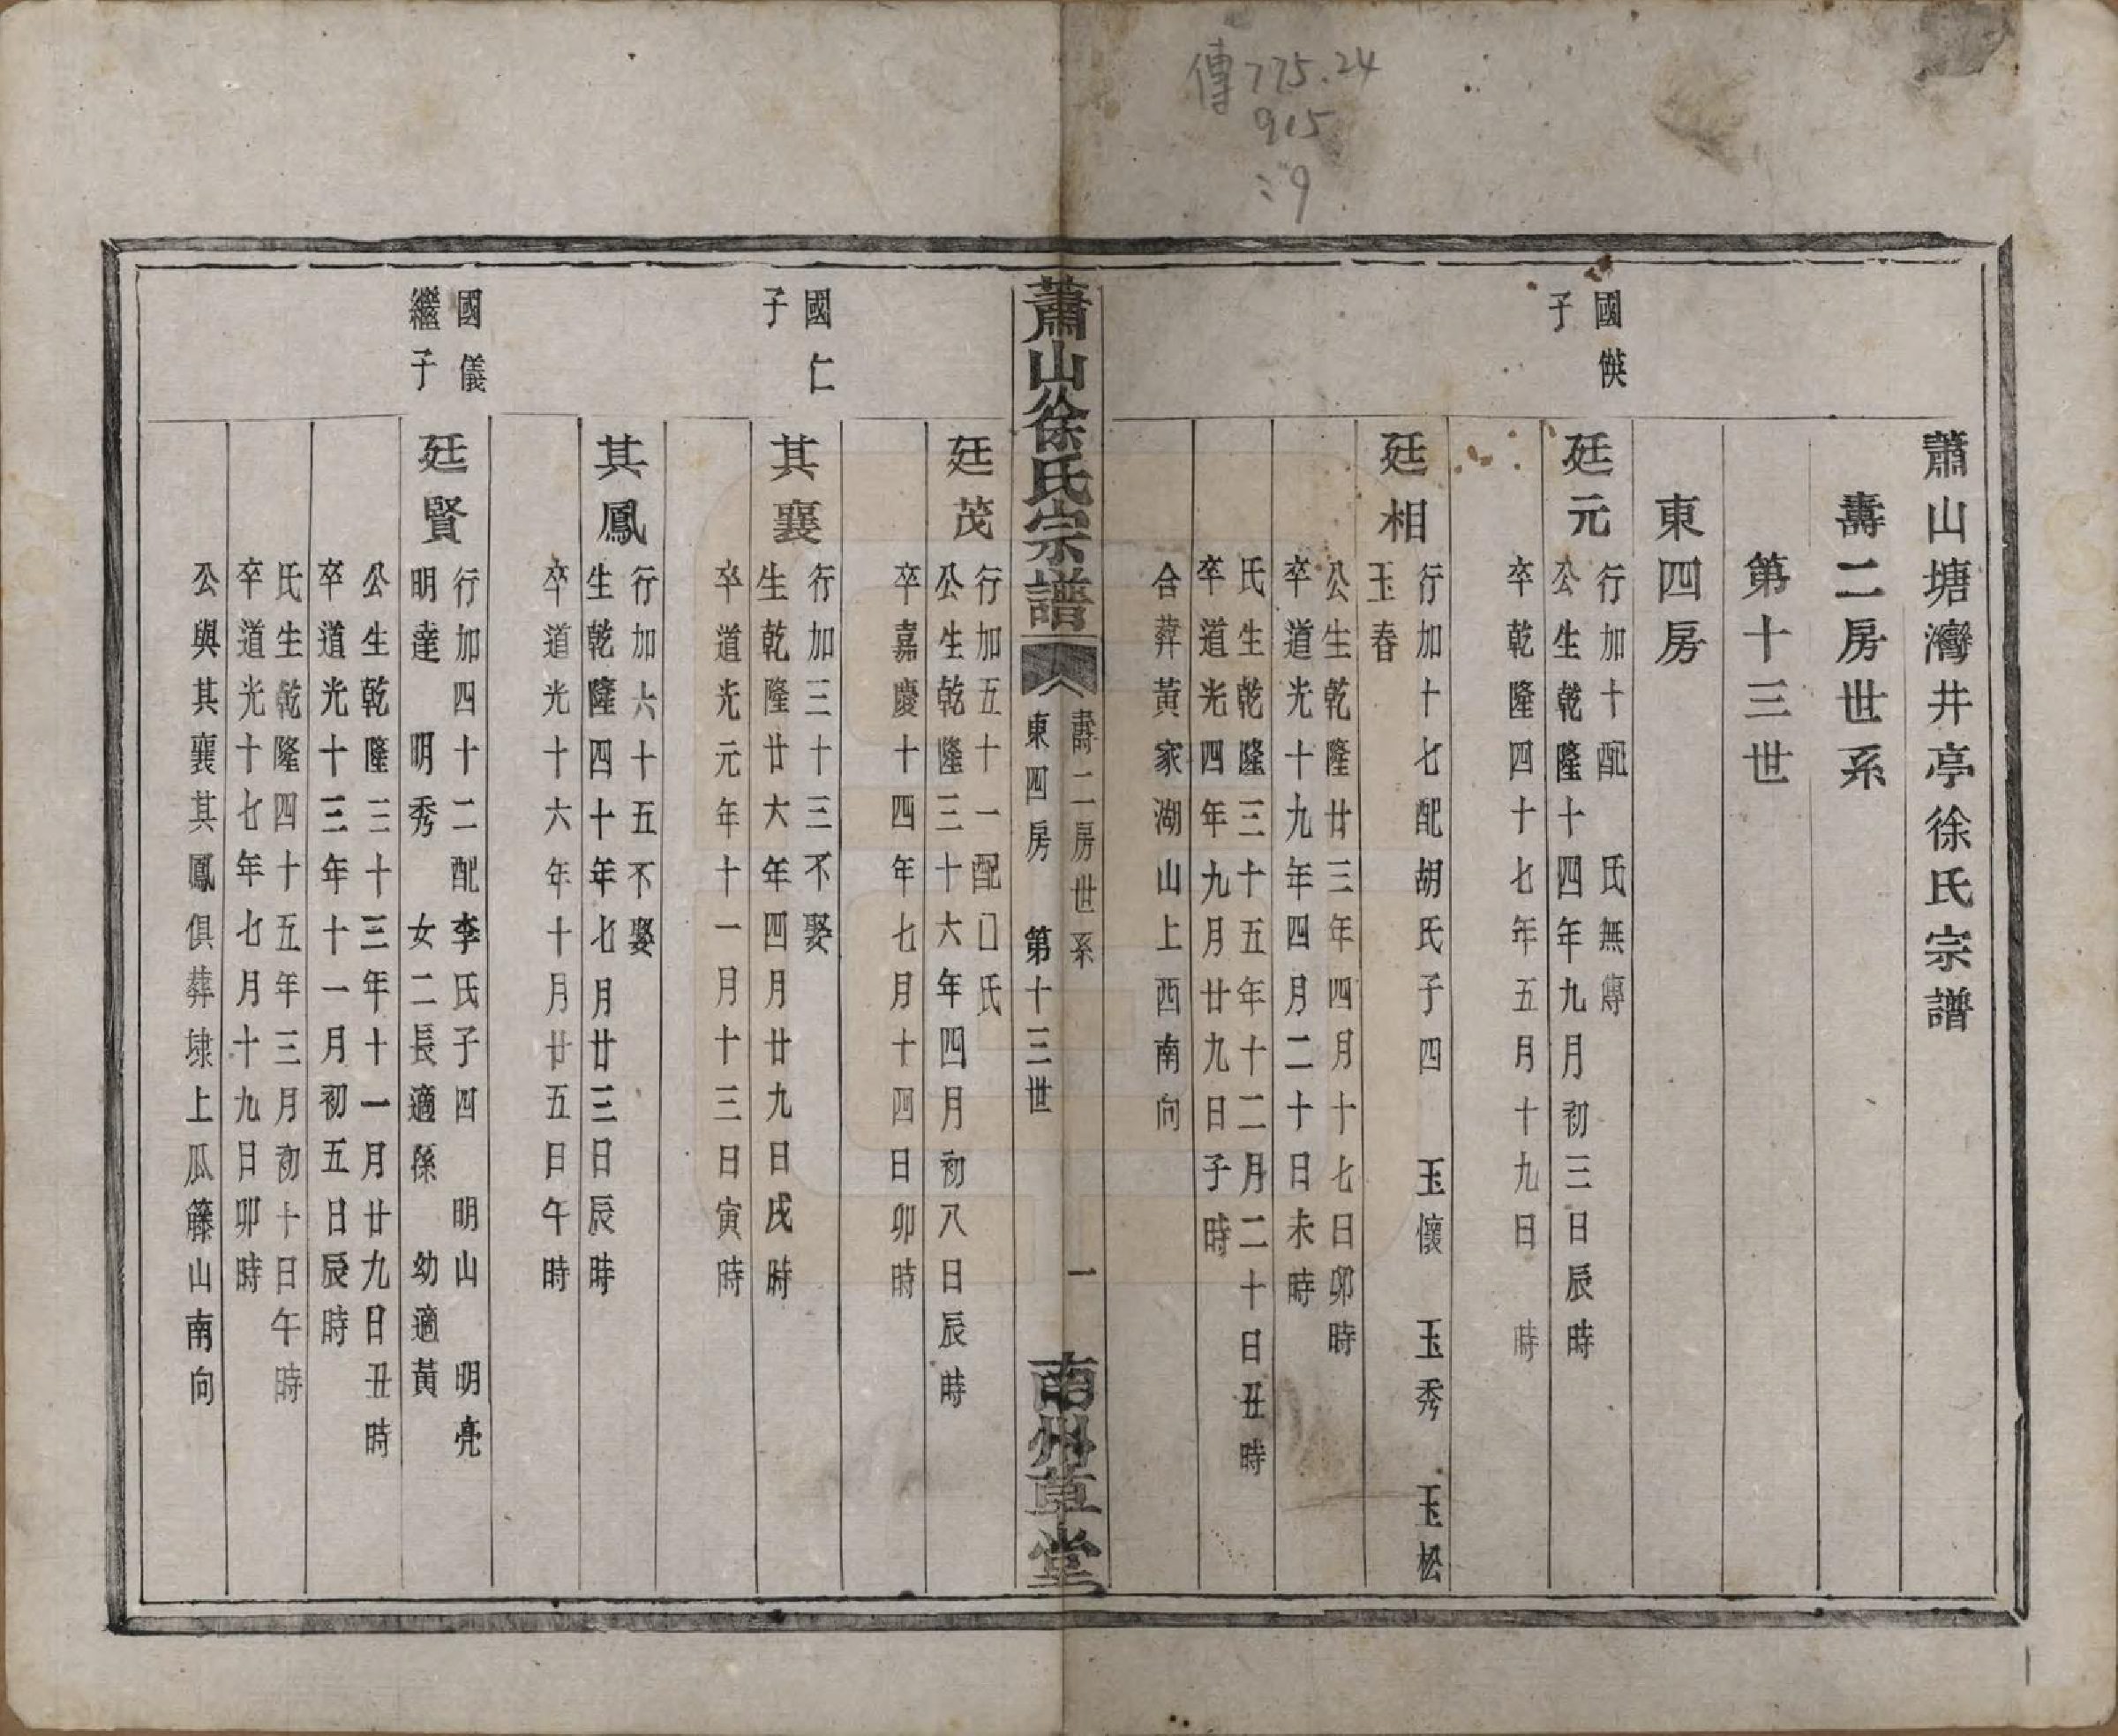 傳775.24
915
:9
蕭山塘灣井亭徐氏宗譜
壽二房世系
第十三世
東四房
國俠
子
廷元
行加十配 氏無傳
公生乾隆十四年九月初三日辰時
卒乾隆四十七年五月十九日 時
廷相
行加十七配胡氏子四 玉懷 玉秀 玉松
玉春
公生乾隆廿三年四月十七日卯時
卒道光十九年四月二十日未時
氏生乾隆三十五年十二月二十日丑時
卒道光四年九月廿九日子時
合葬黃家湖山上西南向
蕭山徐氏宗譜
壽二房世系
東四房 第十三世
一
南州草堂
廷茂
行加五十一配口氏
公生乾隆三十六年四月初八日辰時
卒嘉慶十四年七月十四日卯時
國仁
子
其襄
行加三十三不娶
生乾隆廿六年四月廿九日戌時
卒道光元年十一月十三日寅時
其鳳
行加六十五不娶
生乾隆四十年七月廿三日辰時
卒道光十六年十月廿五日午時
國儀
繼子
廷賢
行加四十二配李氏子四 明山 明亮
明達 明秀 女二長適孫 幼適黃
公生乾隆三十三年十一月廿九日丑時
卒道光十三年十一月初五日辰時
氏生乾隆四十五年三月初十日午時
卒道光十七年七月十九日卯時
公與其襄其鳳俱葬埭上瓜籐山南向